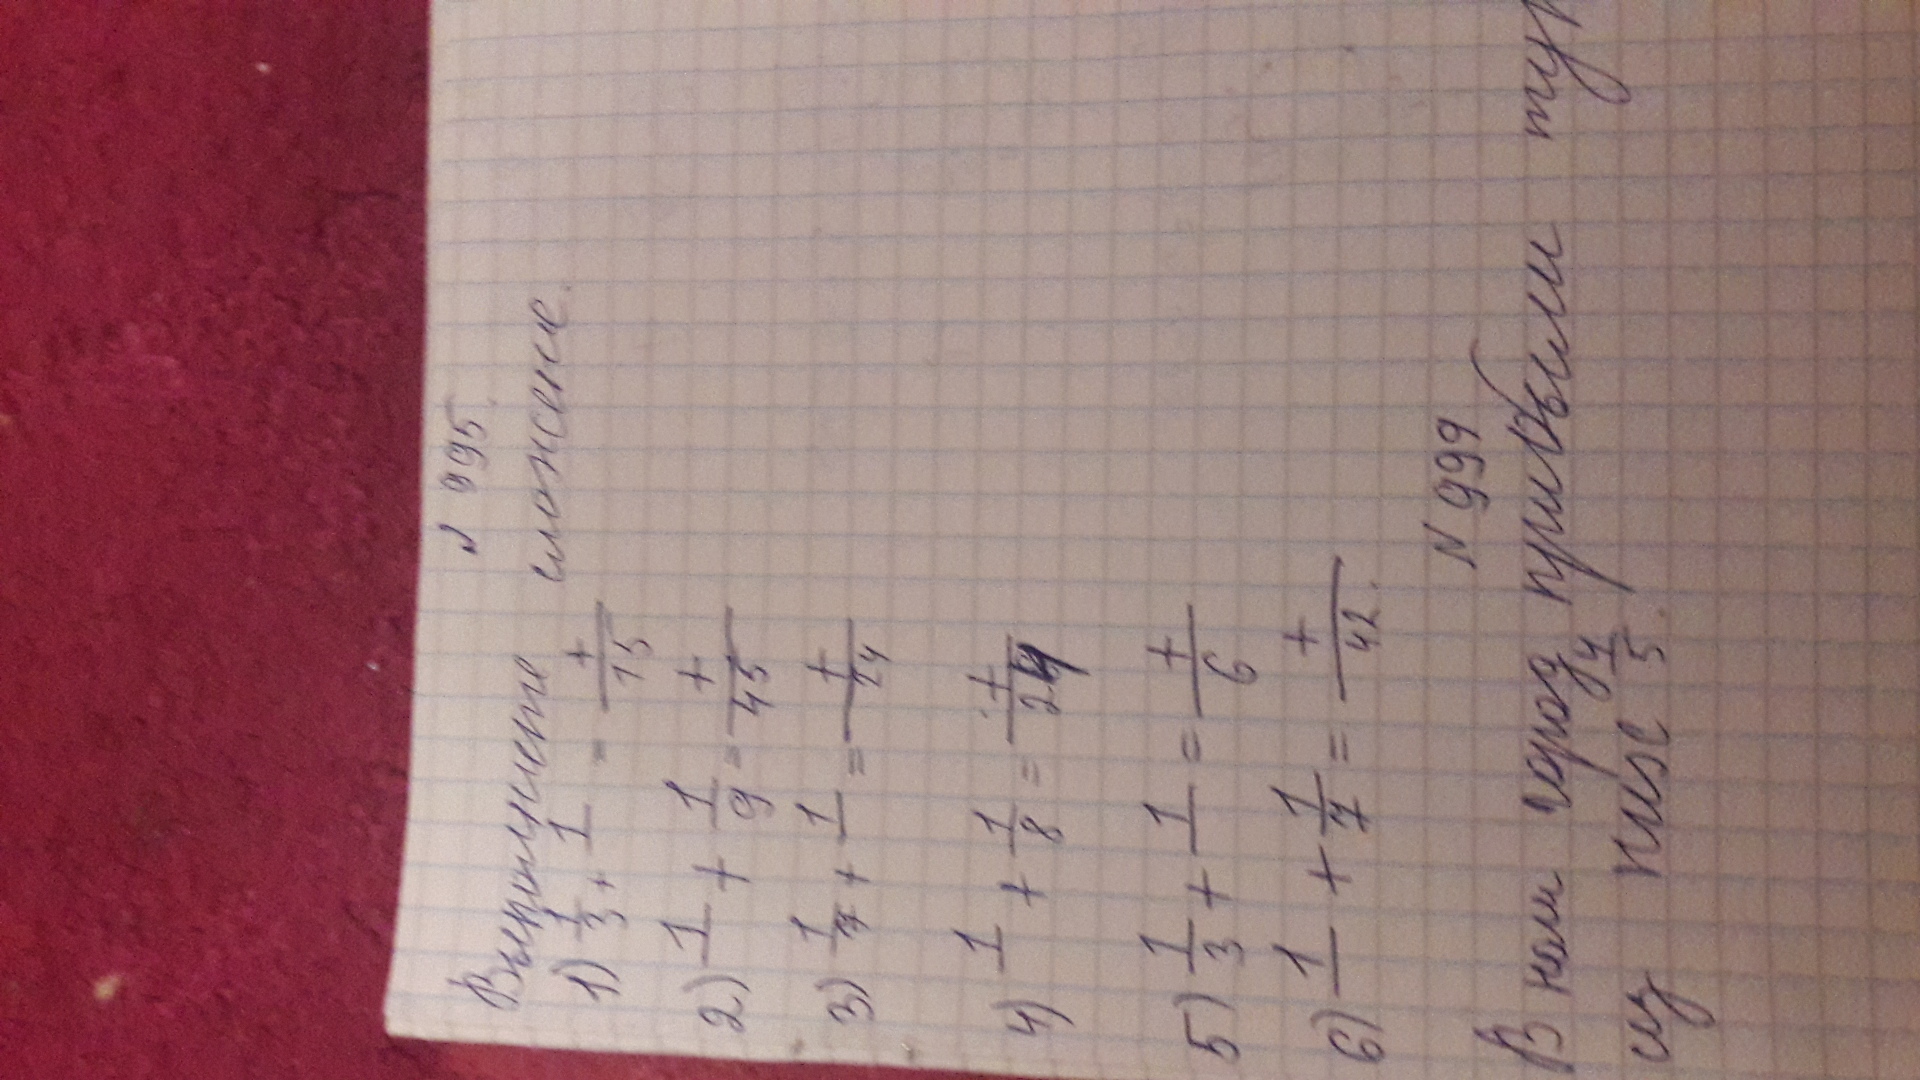 N 995.
Выполните сложение.
1) 1/3 + 1/ = +/15
2) 1/ + 1/9 = +/45
3) 1/7 + 1/ = +/14
4) 1/ + 1/8 = +/24
5) 1/3 + 1/ = +/6
6) 1/ + 1/7 = +/42.
N 999
В наш город прибыли
из них 4/5.